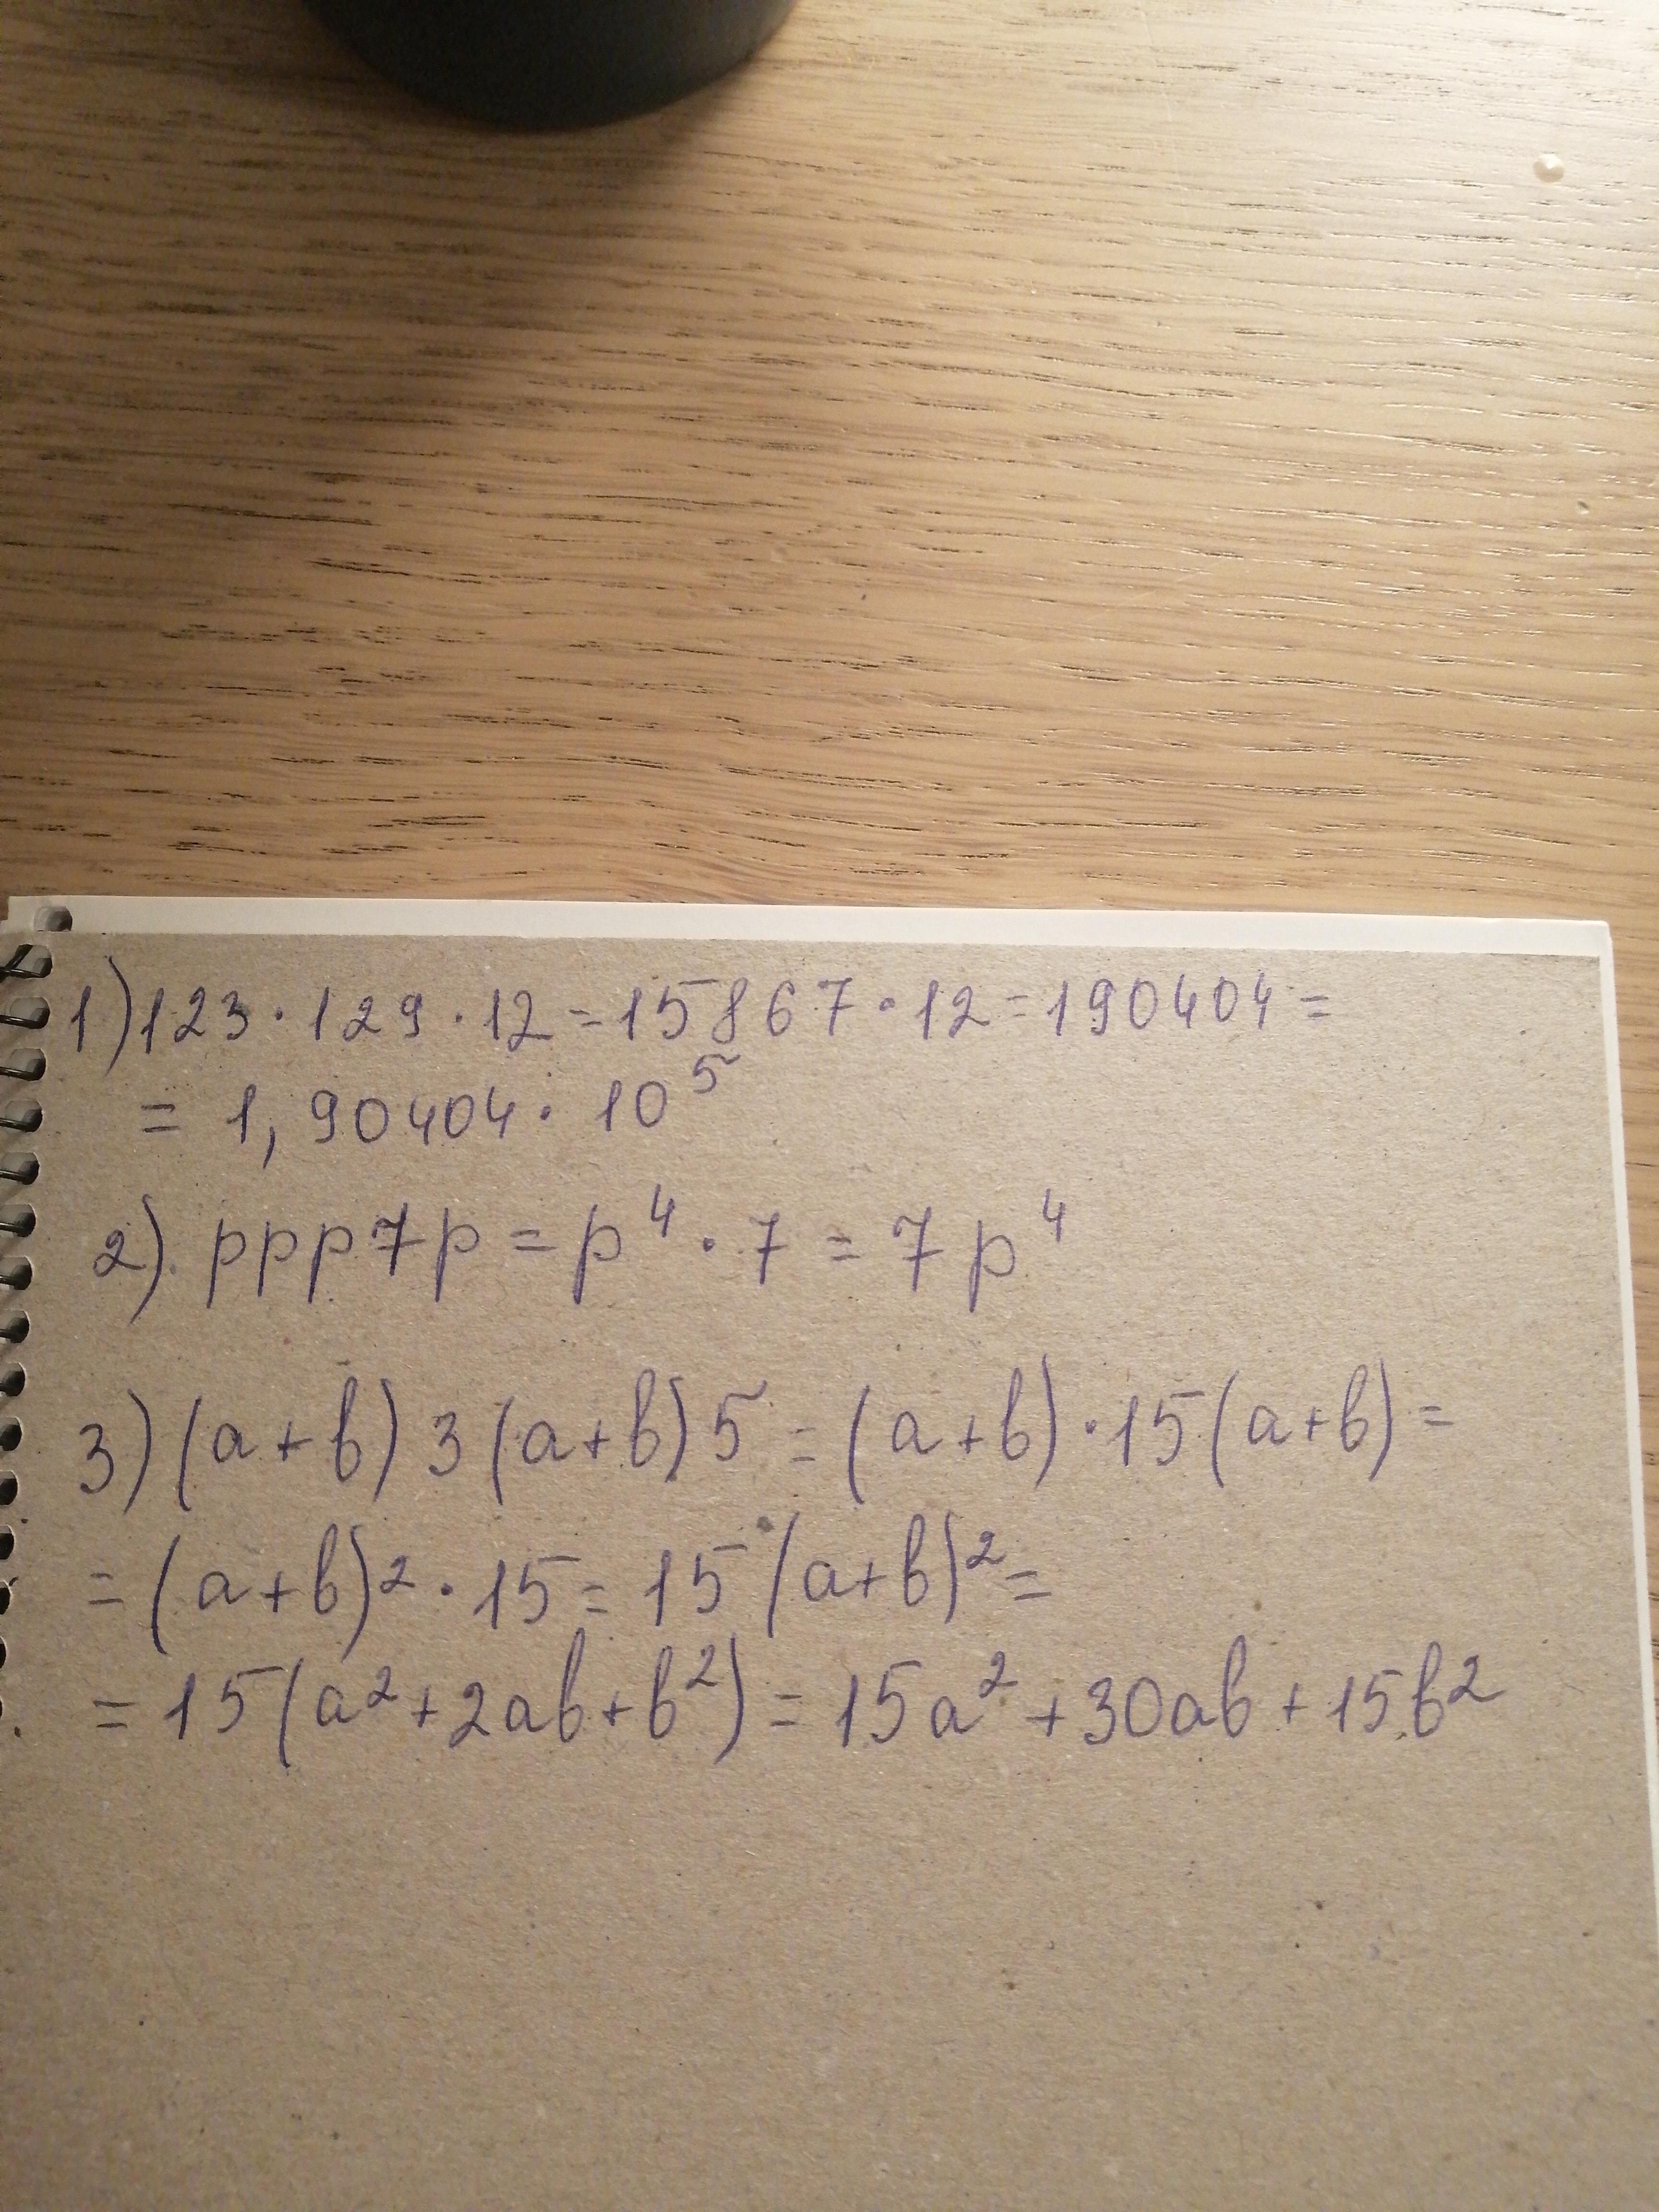 1) 123 · 129 · 12 = 15867 · 12 = 190404 =
= 1,90404 · 10⁵
2). ppp7p = p⁴ · 7 = 7p⁴
3) (a+b)3(a+b)5 = (a+b)·15(a+b) =
= (a+b)² · 15 = 15(a+b)² =
= 15(a²+2ab+b²) = 15a²+30ab+15b²